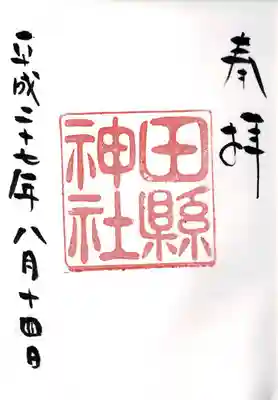 奉拝
田縣
神社
平成二十七年八月十四日